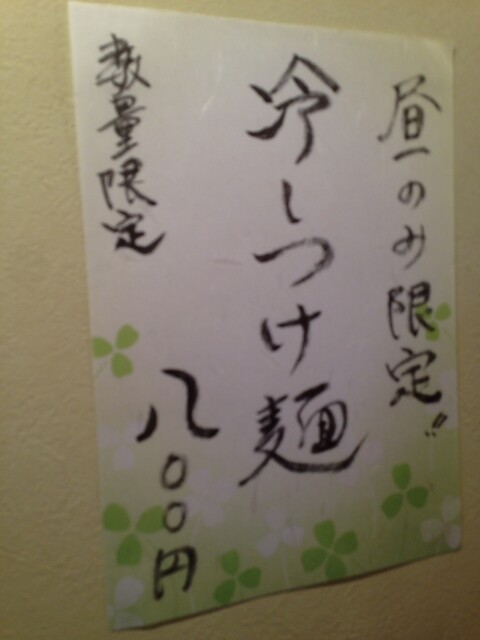 昼のみ限定!!
冷しつけ麺
八〇〇円
数量限定